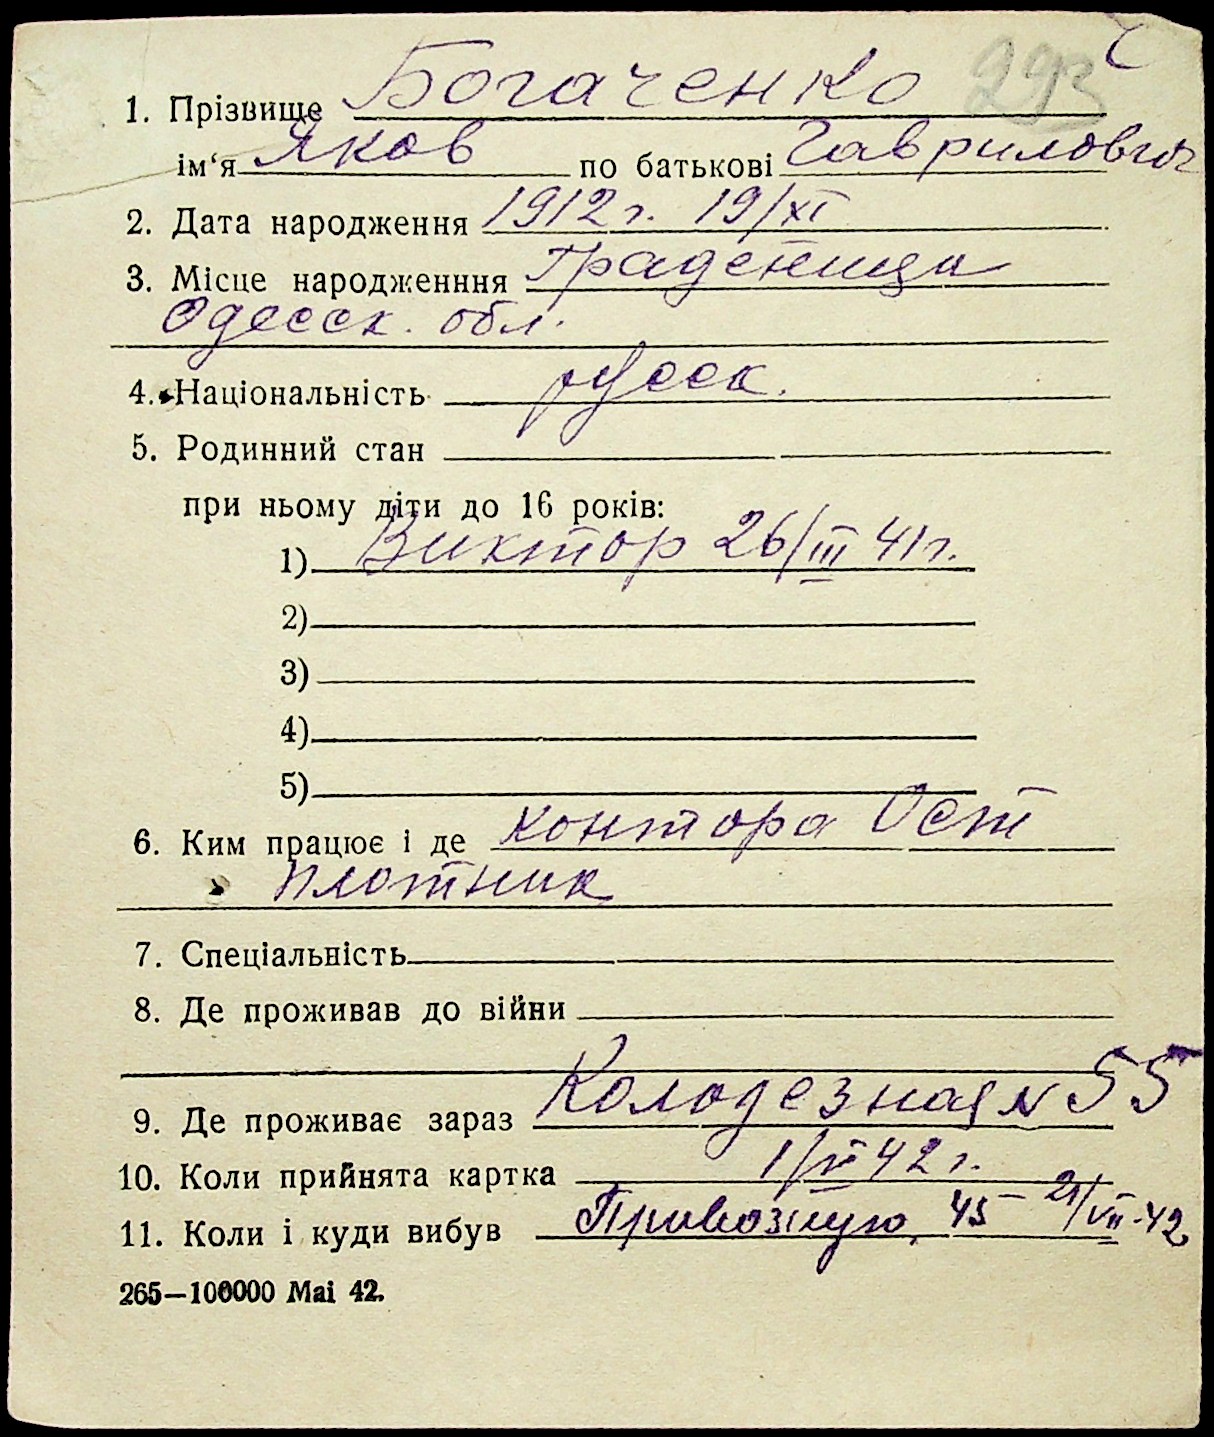 293
1. Прізвище Богаченко
ім‘я Яков по батькові Гаврилович
2. Дата народження 1912 г. 19/XI
3. Місце народженння Граденица
Одесск. обл.
4. Національність русск.
5. Родинний стан
при ньому діти до 16 років:
1) Виктор 26/III 41 г.
2)
3)
4)
5)
6. Ким працює і де контора Ост
плотник
7. Спеціальність
8. Де проживав до війни
9. Де проживає зараз Колодезная N 55
10. Коли прийнята картка 1/VI 42 г.
11. Коли і куди вибув Привозную, 45 – 21/VII-42
265—100000 Маі 42.